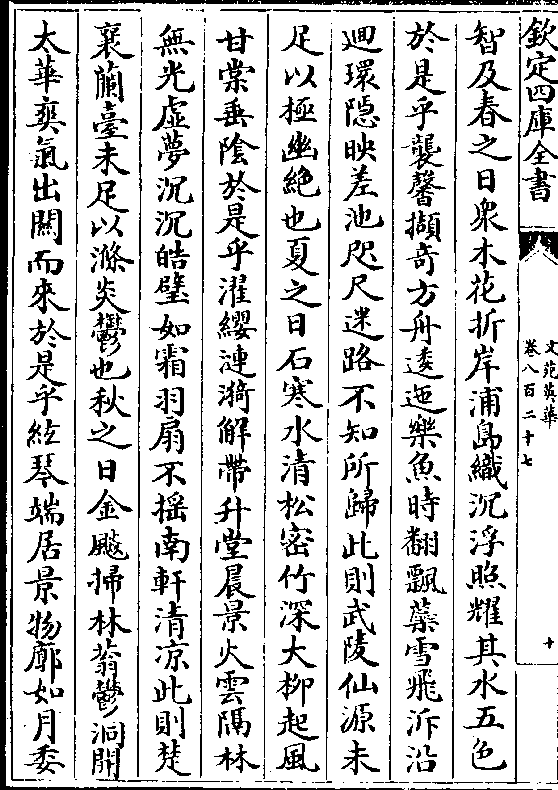 欽定四庫全書
文苑英華
卷八百二十七
十
智及春之日衆木花折岸浦島織沉浮照耀其水五色
於是乎襲馨擷奇方舟逶迤樂魚時翻飄蘂雪飛泝沿
迴環隱映差池咫尺迷路不知所歸此則武陵仙源未
足以極幽絶也夏之日石寒水清松密竹深大柳起風
甘棠垂陰於是乎濯纓漣漪解帶升堂晨景火雲隔林
無光虛夢沉沉皓璧如霜羽扇不揺南軒清凉此則楚
襄蘭臺未足以滌炎鬱也秋之日金飈掃林蓊鬱洞開
太華爽氣出關而來於是乎絃琴端居景物廊如月委